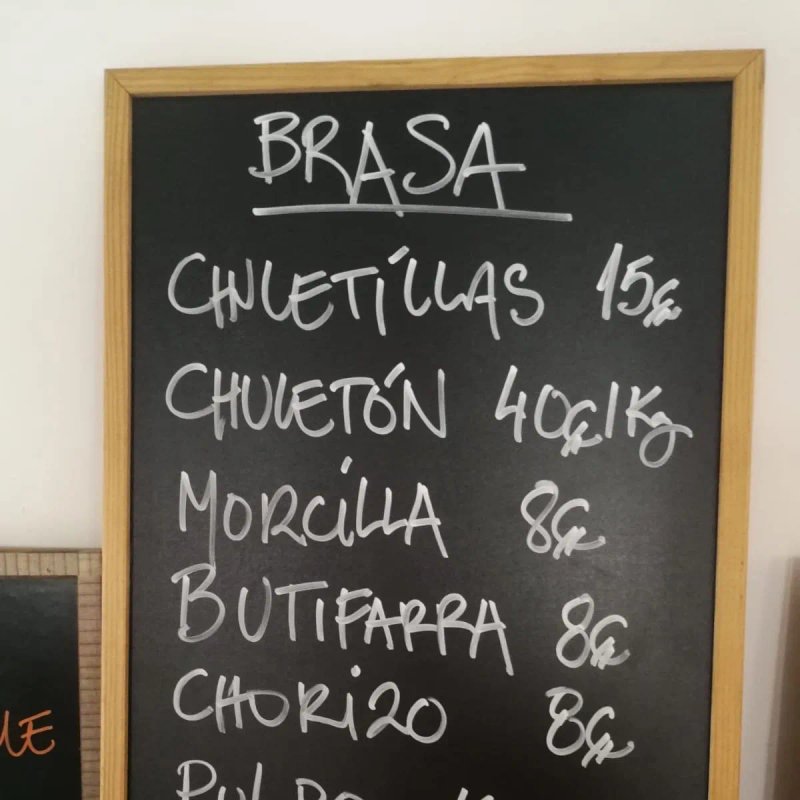 BRASA
CHULETILLAS 15€
CHULETÓN 40€/Kg
MORCILLA 8€
BUTIFARRA 8€
CHORIZO 8€
PULPO